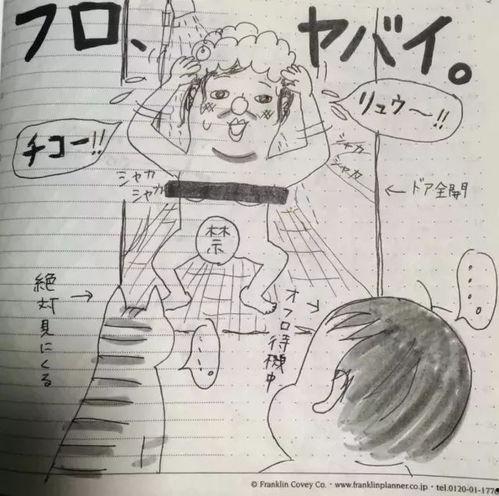 フロ、ヤバイ。
チコー!!
リュウ〜!!
シャカ
シャカ
シャカ
シャカ
←ドア全開
禁
絶対見にくる
→
オフロ待機中
→
・・・・。
・・・・。
© Franklin Covey Co.・www.franklinplanner.co.jp・tel.0120-01-177